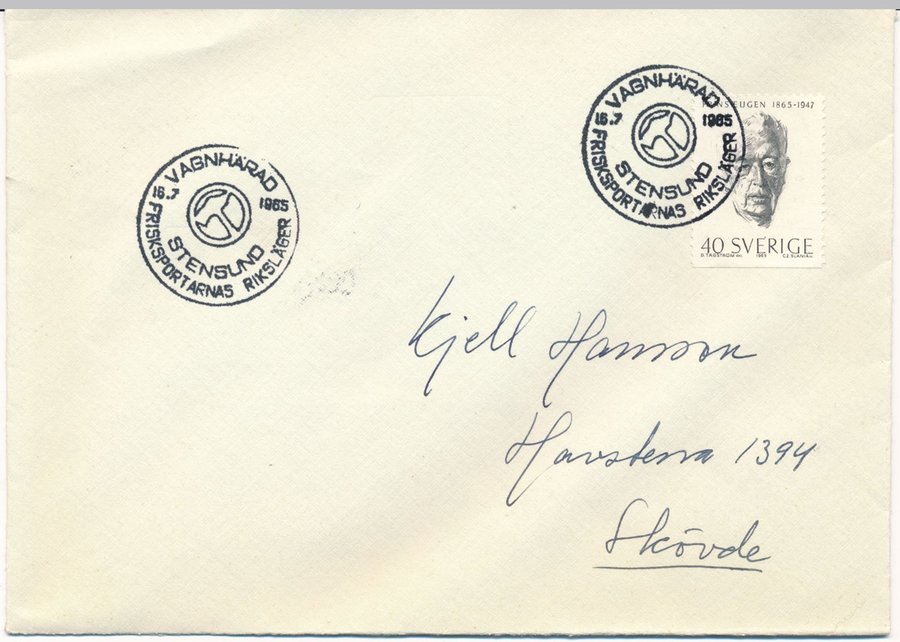 VAGNHÄRAD
16.7 1965
STENSUND
FRISKSPORTARNAS RIKSLÄGER
VAGNHÄRAD
16.7 1965
STENSUND
FRISKSPORTARNAS RIKSLÄGER
EUGEN 1865-1947
40 SVERIGE
1965 CZ.SLANIA
Kjell Hansson
Havstena 1394
Skövde